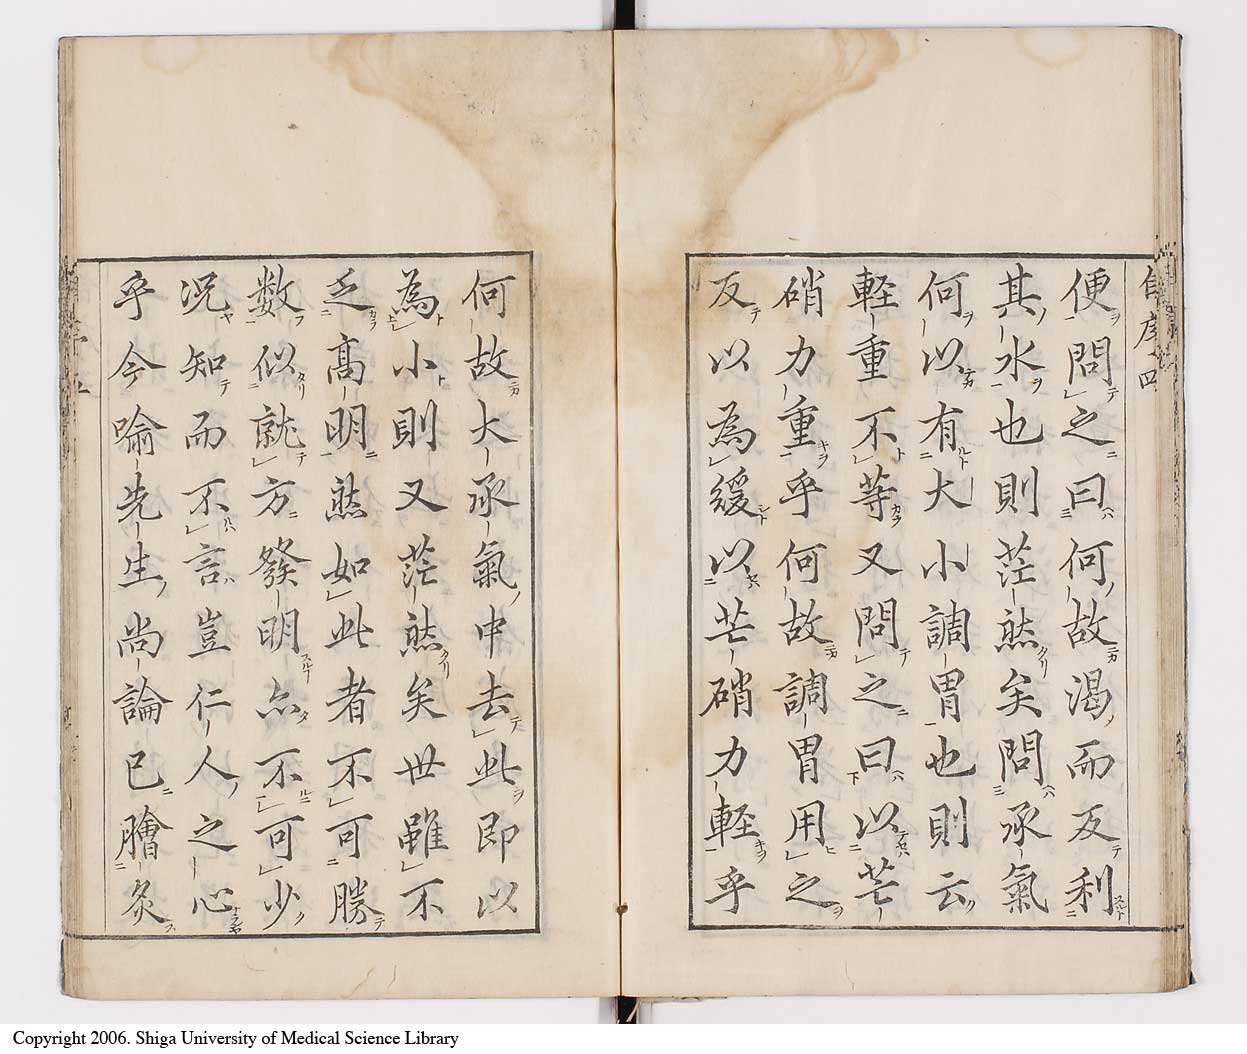 便問之曰何故渇而反利
其水也則茫然矣問承氣
何以有大小調胃也則云
軽重不等又問之曰以芒
硝力重乎何故調胃用之
反以為緩以芒硝力軽乎
何故大承氣中去此即以
為小則又茫然矣世雖不
乏高明然如此者不可勝
数似就方發明亦不可少
况知而不言豈仁人之心
乎今喩先生尚論已膾炙
Copyright 2006. Shiga University of Medical Science Library